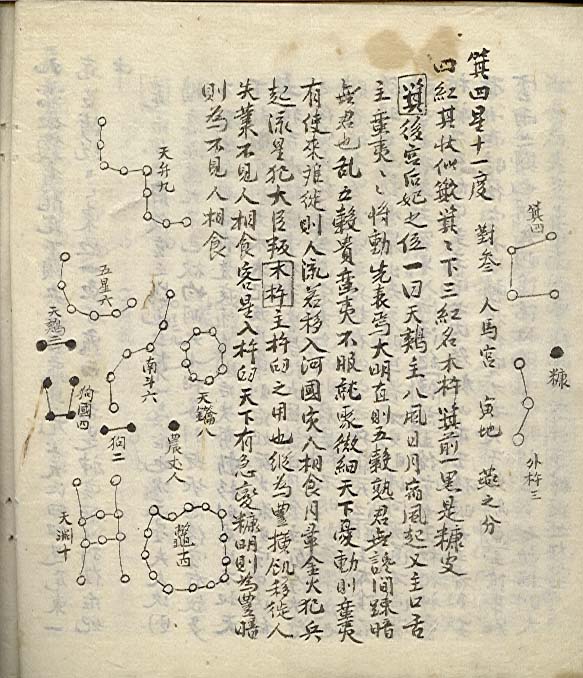 箕四星十一度 對參 人馬宮 寅地 燕之分
四紅其狀似簸箕箕下三紅名木杵箕前一黑是糠皮
箕後宮后妃之位一曰天鷄主八風日月宿風起又主口舌
主蠻夷蠻夷將動先表焉大明直則五穀熟君無讒間踈暗
無君也乱五穀貴蠻夷不服就聚微細天下憂動則蠻夷
有使來離徙則人流若移入河國灾人相食月暈金火犯兵
起流星犯大臣叛木杵主杵臼之用也縱為豐橫飢移徙人
失業不見人相食客星入杵臼天下有急變糠明則為豐暗
則為不見人相食
箕四
糠
外杵三
天弁九
五星六
天鷄二
南斗六
天籥八
狗國四
狗二
農丈人
天淵十
鼈